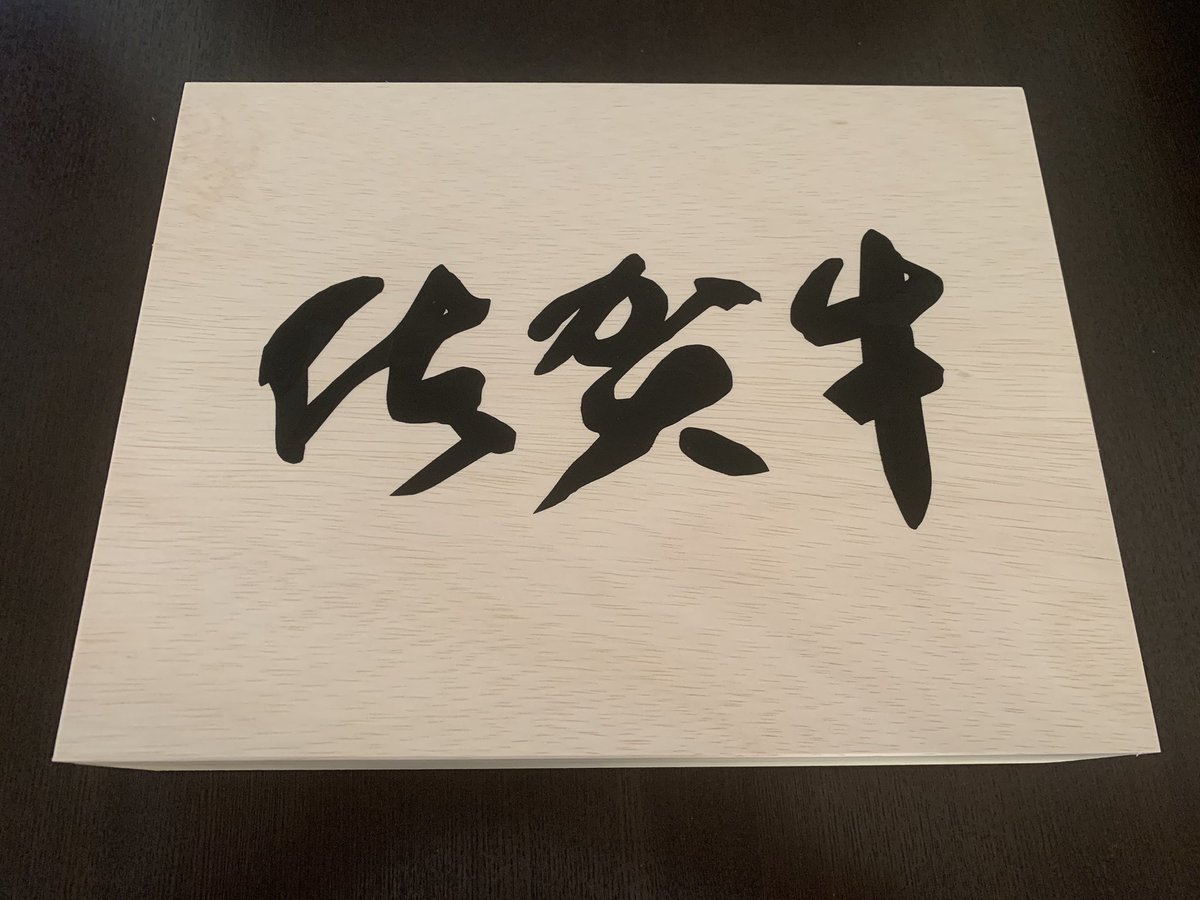 佐賀牛